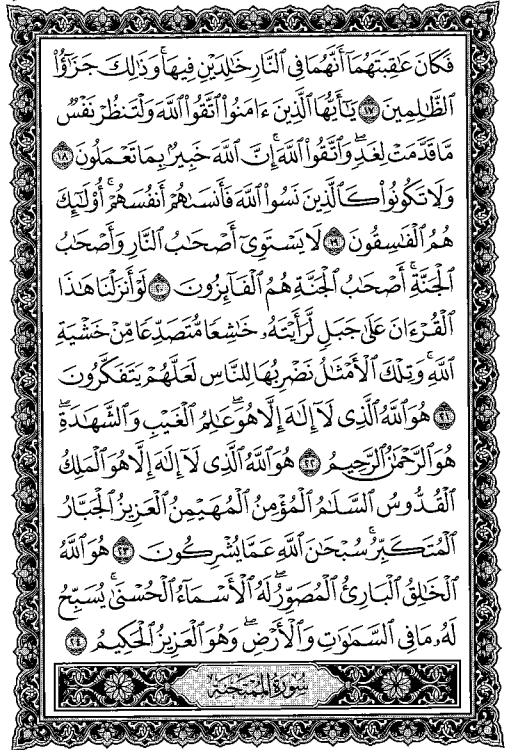 فَكَانَ عَٰقِبَتَهُمَآ أَنَّهُمَا فِي ٱلنَّارِ خَٰلِدَيْنِ فِيهَا ۚ وَذَٰلِكَ جَزَٰٓؤُا۟
ٱلظَّٰلِمِينَ ١٧ يَٰٓأَيُّهَا ٱلَّذِينَ ءَامَنُوا۟ ٱتَّقُوا۟ ٱللَّهَ وَلْتَنظُرْ نَفْسٌ
مَّا قَدَّمَتْ لِغَدٍ ۖ وَٱتَّقُوا۟ ٱللَّهَ ۚ إِنَّ ٱللَّهَ خَبِيرٌۢ بِمَا تَعْمَلُونَ ١٨
وَلَا تَكُونُوا۟ كَٱلَّذِينَ نَسُوا۟ ٱللَّهَ فَأَنسَىٰهُمْ أَنفُسَهُمْ ۚ أُو۟لَٰٓئِكَ
هُمُ ٱلْفَٰسِقُونَ ١٩ لَا يَسْتَوِىٓ أَصْحَٰبُ ٱلنَّارِ وَأَصْحَٰبُ
ٱلْجَنَّةِ ۚ أَصْحَٰبُ ٱلْجَنَّةِ هُمُ ٱلْفَآئِزُونَ ٢٠ لَوْ أَنزَلْنَا هَٰذَا
ٱلْقُرْءَانَ عَلَىٰ جَبَلٍ لَّرَأَيْتَهُۥ خَٰشِعًا مُّتَصَدِّعًا مِّنْ خَشْيَةِ
ٱللَّهِ ۚ وَتِلْكَ ٱلْأَمْثَٰلُ نَضْرِبُهَا لِلنَّاسِ لَعَلَّهُمْ يَتَفَكَّرُونَ
٢١ هُوَ ٱللَّهُ ٱلَّذِى لَآ إِلَٰهَ إِلَّا هُوَ ۖ عَٰلِمُ ٱلْغَيْبِ وَٱلشَّهَٰدَةِ ۖ
هُوَ ٱلرَّحْمَٰنُ ٱلرَّحِيمُ ٢٢ هُوَ ٱللَّهُ ٱلَّذِى لَآ إِلَٰهَ إِلَّا هُوَ ٱلْمَلِكُ
ٱلْقُدُّوسُ ٱلسَّلَٰمُ ٱلْمُؤْمِنُ ٱلْمُهَيْمِنُ ٱلْعَزِيزُ ٱلْجَبَّارُ
ٱلْمُتَكَبِّرُ ۚ سُبْحَٰنَ ٱللَّهِ عَمَّا يُشْرِكُونَ ٢٣ هُوَ ٱللَّهُ
ٱلْخَٰلِقُ ٱلْبَارِئُ ٱلْمُصَوِّرُ ۖ لَهُ ٱلْأَسْمَآءُ ٱلْحُسْنَىٰ ۚ يُسَبِّحُ
لَهُۥ مَا فِي ٱلسَّمَٰوَٰتِ وَٱلْأَرْضِ ۖ وَهُوَ ٱلْعَزِيزُ ٱلْحَكِيمُ ٢٤
سُورَةُ الْمُمْتَحَنَةِ